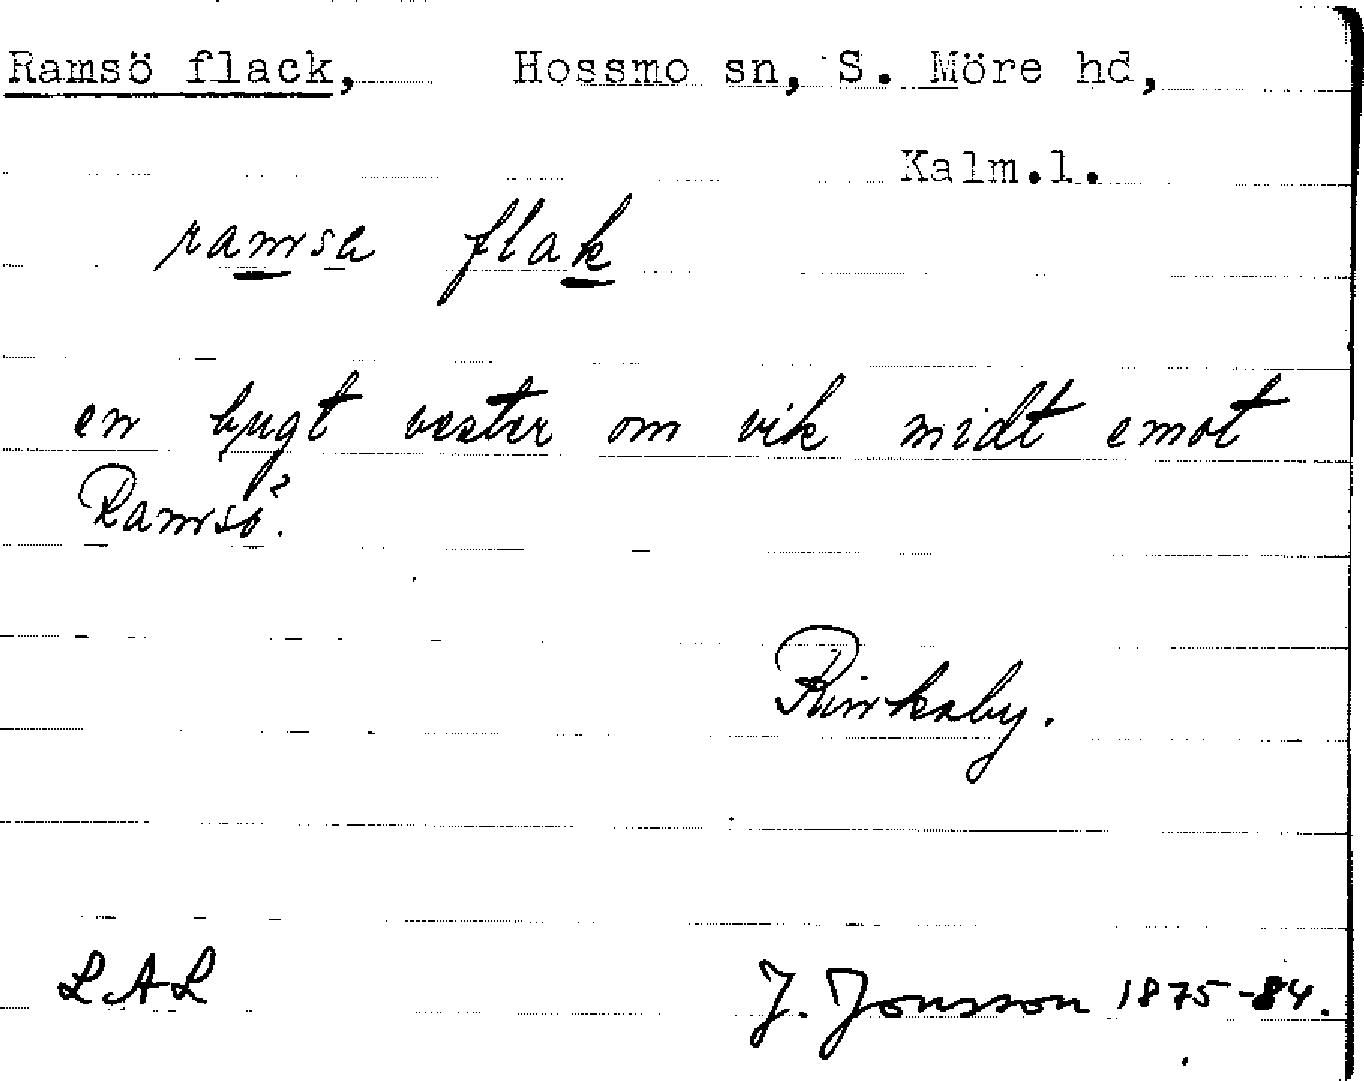 Ramsö flack, Hossmo sn, S. Möre hd,
Kalm.l.
ramsa flak
en bugt vester om vik midt emot
Ramsö?
Rinkaby.
LAL J. Jonsson 1875-84.